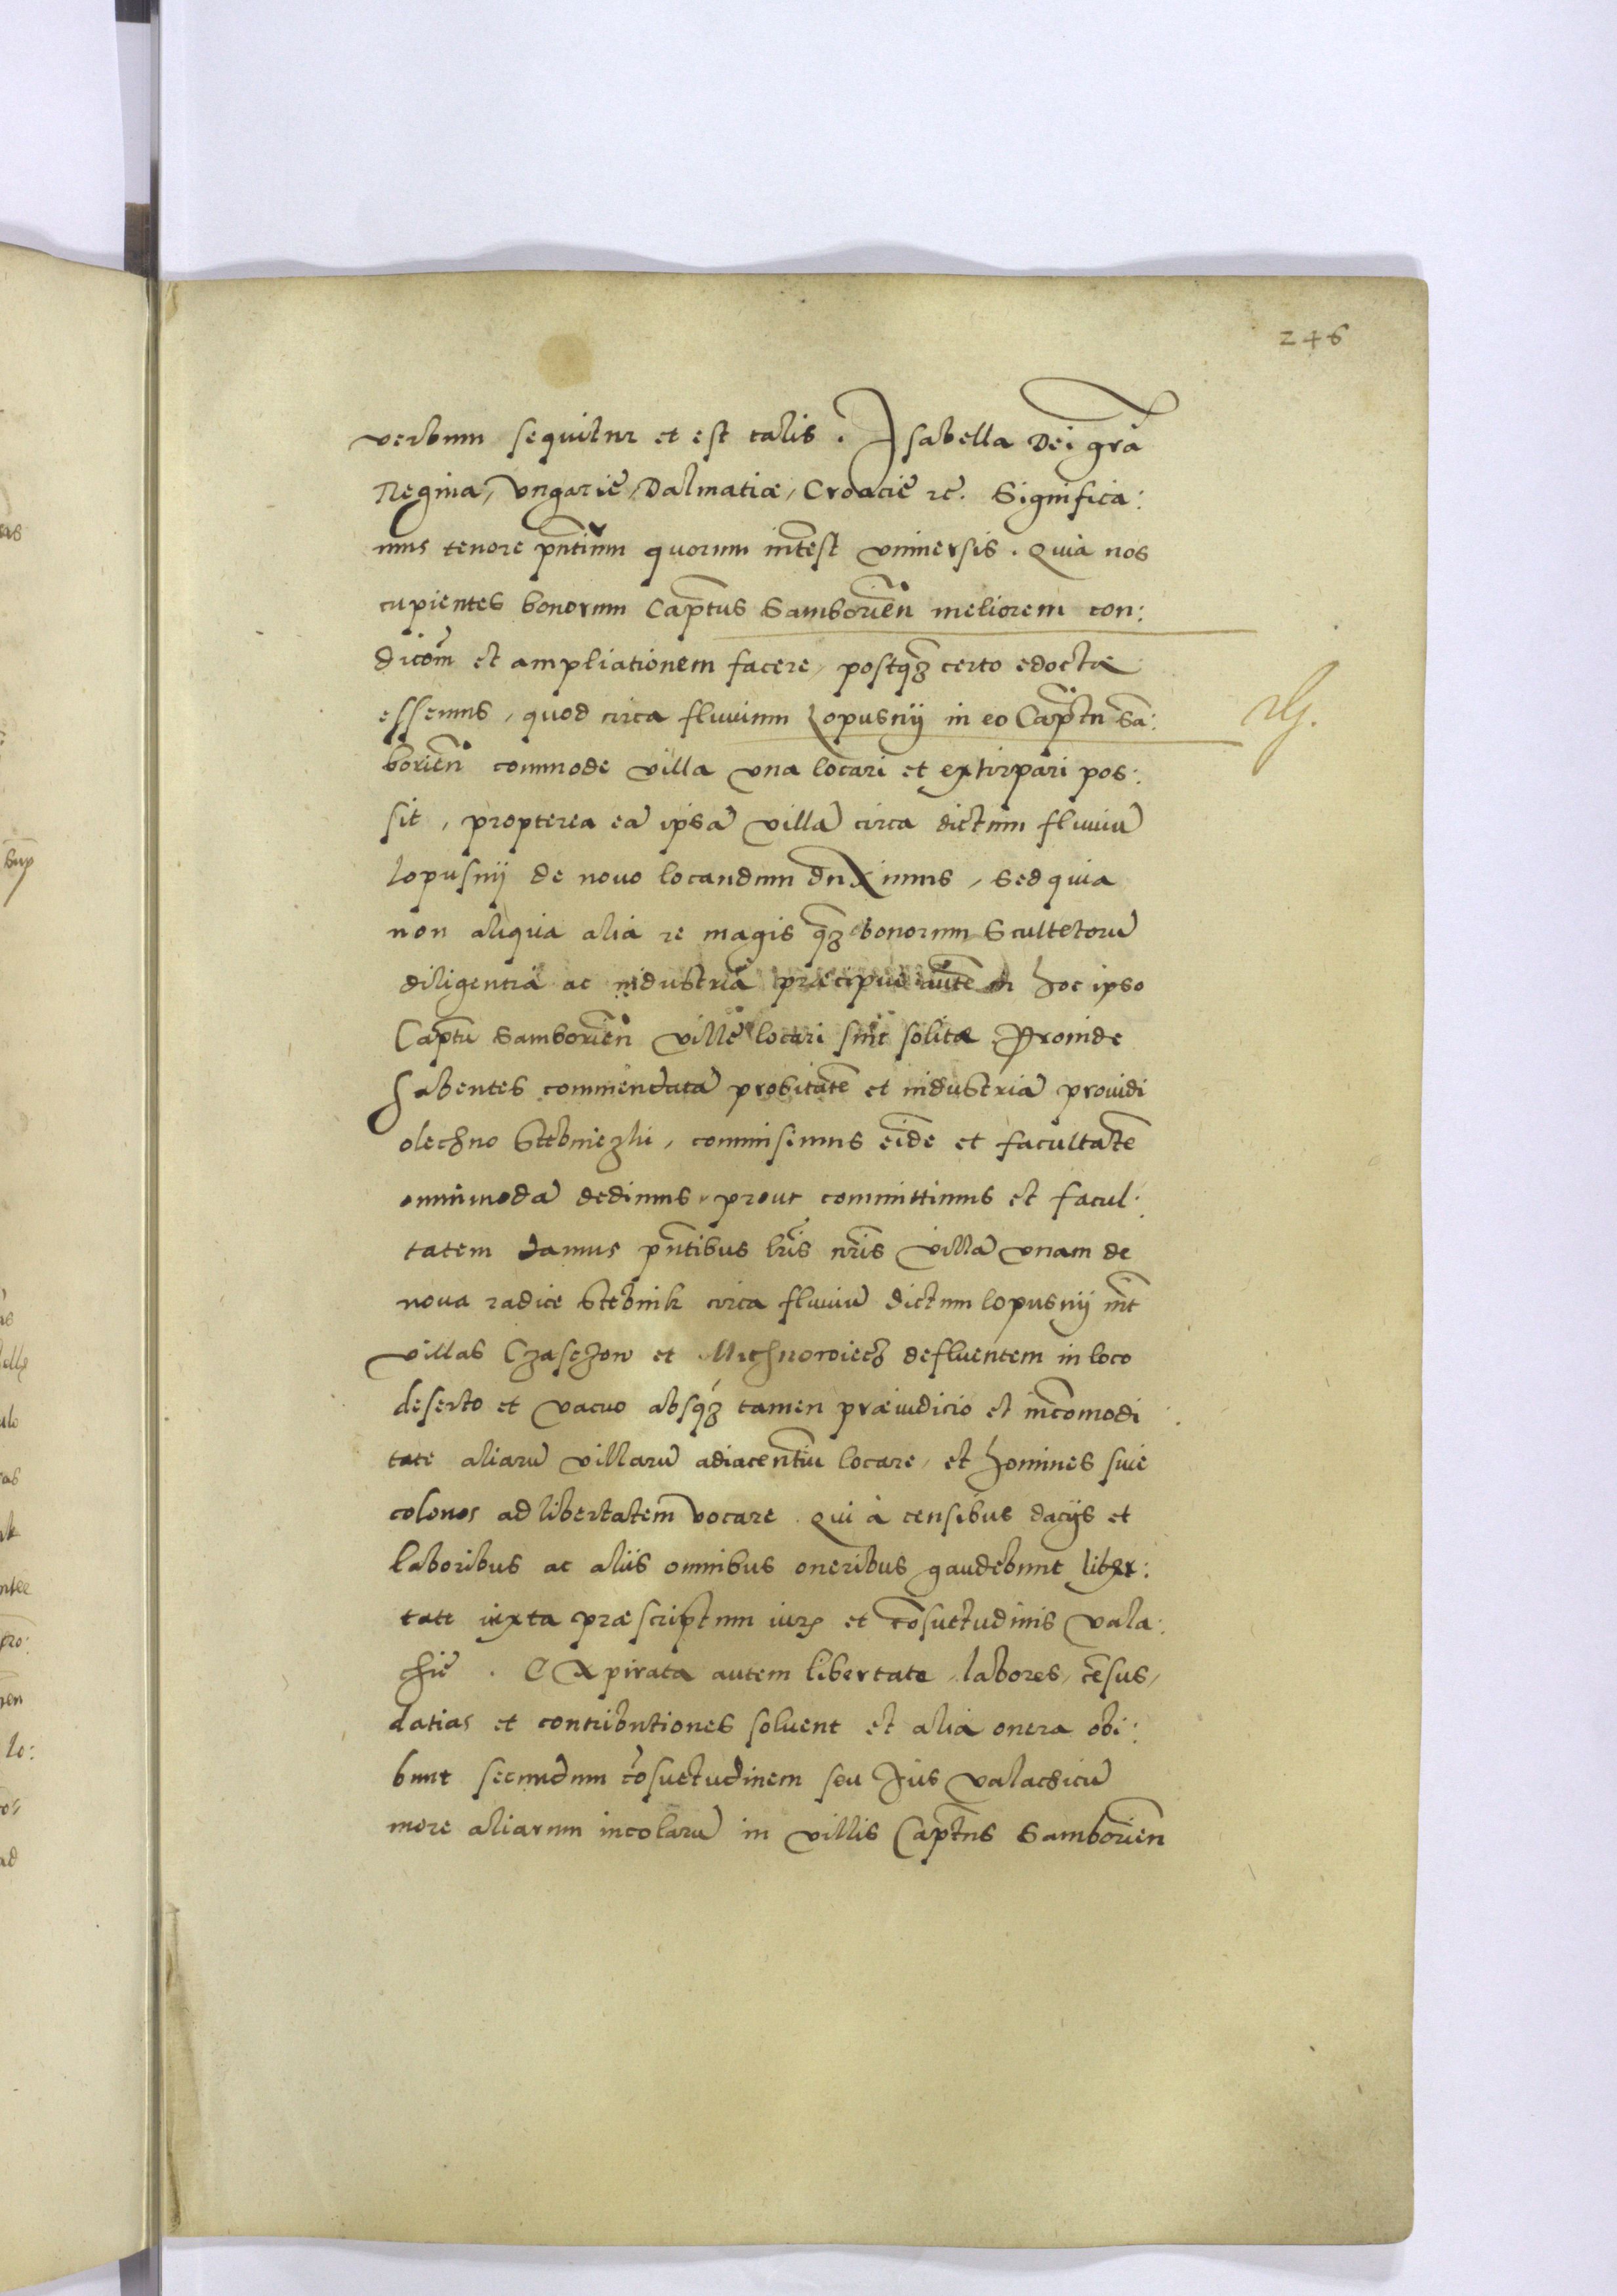 246
verbum sequitur et est talis. Isabella Dei grã
Regina, Ungarię, Dalmatiæ, Croacię rc̃. Significa:
mus tenore pñtium quorum int̃est universis. Quia nos
cupientes bonorum Cap̃tus Samborieñ meliorem con:
dicom̃ et ampliationem facere, postq̃ȝ certo edoctæ
essemus, quod circa fluvium Lopusnÿ in eo Cap̃tu Sã:
borieñ commode villa una locari et extirpari pos:
sit, propterea eã ipsã villã circa dictum fluviũ
lopusnÿ de novo locandum duximus, sed quia
non aliqua alia re magis q̃ȝ bonorum Scultetorũ
diligentia ac industria præcipue autẽ in hoc ipso
Cap̃tu Samborieñ villę locari sint solitæ Proinde
habentes commendatã probitatẽ et industriã providi
olechno Stebniczki, commisimus eidẽ et facultatẽ
omnimodã dedimus, prout committimus et facul:
tatem damus pñtibus lr̃is nr̃is villã unam de
nova radice Stebnik circa fluviũ dictum lopusnÿ int̃
villas Czasczow et Michnowiecz defluentem in loco
deserto et vacuo absqȝ tamen præiudicio et incõmodi
tate aliarũ villarũ adiacentiũ locare, et homines sive
colonos ad libertatem vocare. Qui à censibus dacÿs et
laboribus ac aliis omnibus oneribus gaudebunt liber:
tate iuxta præscriptum iurꝭ et cõsuetudinis vala:
chię. Expirata autem libertate, labores, cẽsus,
datias et contributiones solvent et alia onera obi:
bunt secundum cõsuetudinem seu Jus valachicũ
more aliarum incolarũ in villis Cap̃tus Samborieñ